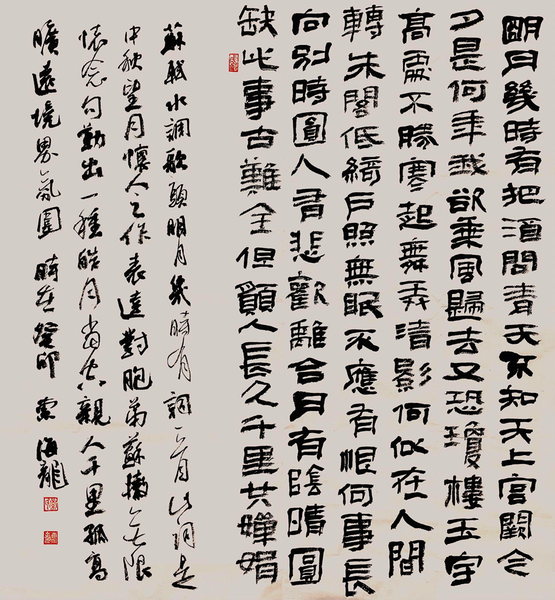 明月幾時有把酒問青天不知天上宮闕今
夕是何年我欲乘風歸去又恐瓊樓玉宇
高處不勝寒起舞弄清影何似在人間
轉朱閣低綺戶照無眠不應有恨何事長
向別時圓人有悲歡離合月有陰晴圓
缺此事古難全但願人長久千里共嬋娟
蘇軾水調歌頭明月幾時有詞一首此詞是
中秋望月懷人之作表達對胞弟蘇轍無限
懷念勾勒出一種皓月當空親人千里孤高
曠遠境界氛圍時在癸卯海龍